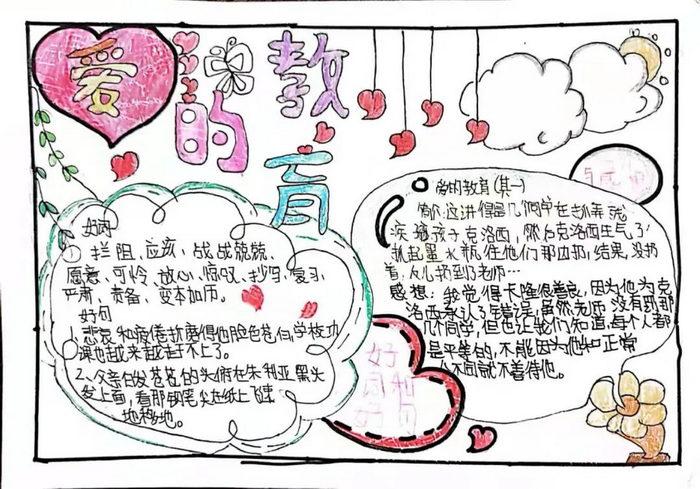 爱的教育
好词
①拦阻、应该、战战兢兢、
愿意、可怜、放心、惊叹、抄写、复习、
严肃、责备、变本加厉。
好句
1.悲哀和疲倦折磨得他脸色苍白,学校功
课也越来越赶不上了。
2、父亲白发苍苍的头俯在朱利亚黑头
发上面,看那钢笔尖在纸上飞速
地移动。
好词和
好句
爱的教育(其一)
简介:这讲得是几个同学在
疾 孩子克洛西,然后克洛西生气了
抓起墨水瓶往他们那边扔,结果,没扔
着,反儿扔到了老师…
感想:我觉得卡隆很善良,因为他为克
洛西承认了错误,虽然老师没有
几个同学,但也让他们知道,每个人都
是平等的,不能因为他和正常
人不同就不善待他。